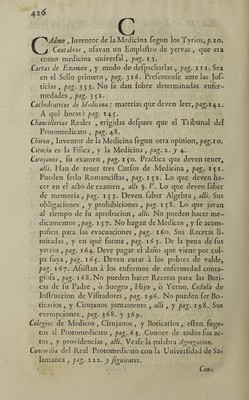 426
C
CAdmo, Inventor de la Medicina segun los Tyrios, p.10.
Cantabros, usavan un Emplastro de yervas, que era
como medicina universal, pag. 13.
Cartas de Examen, y modo de despacharlas, pag. 111. Sea
en el Sello primero, pag. 316. Presentense ante las Jus-
ticias, pag. 353. No se dan sobre determinadas enfer-
medades, pag. 352.
Cathedraticos de Medicina: materias que deven leer, pag.142.
A què horas? pag. 145.
Chancillerias Reales, erigidas despues que el Tribunal del
Protomedicato, pag. 48.
Chiron, Inventor de la Medicina segun otra opinion, pag.10.
Ciencia es la Fisica, y la Medicina, pag. 2. y 4.
Cirujanos, su examen, pag. 150. Practica que deven tener,
alli. Han de tener tres Cursos de Medicina, pag. 151.
Pueden serlo Romancistas, pag. 152. Lo que deven ha-
cer en el acto de examen, alli §. V. Lo que deven saber
de memoria, pag. 153. Deven saber Algebra, alli. Sus
obligaciones, y prohibiciones, pag. 158. Lo que juran
al tiempo de su aprobacion, alli. No pueden hacer me-
dicamentos, pag. 157. No hagan de Medicos, y se acom-
pañen para las evacuaciones, pag. 160. Sus Recetas li-
mitadas, y en què forma, pag. 163. De la pena de sus
yerros, pag. 164. Deve pagar el daño que viene por cul-
pa suya, pag. 165. Deven curar à los pobres de valde,
pag. 167. Assistan à los enfermos de enfermedad conta-
giosa, pag. 168. No pueden hacer Recetas para las Boti-
cas de su Padre, ò Suegro, Hijo, ò Yerno. Cedula de
Instruccion de Visitadores, pag. 196. No pueden ser Bo-
ticarios, y Cirujanos juntamente, alli, y pag. 198. Sus
exempciones, pag. 368. y 369.
Colegios de Medicos, Cirujanos, y Boticarios, estàn suge-
tos al Protomedicato, pag. 63. Conoce de todos sus ac-
tos, y providencias, alli. Vease la palabra Agregacion.
Concordia del Real Protomedicato con la Universidad de Sa-
lamanca, pag. 122. y siguientes.
Con-